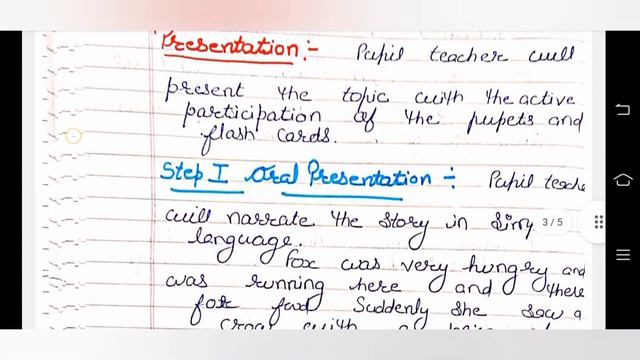 Presentation:- Pupil teacher will
present the topic with the active
participation of the pupets and
flash cards.
Step I Oral Presentation :- Pupil teache
will narrate the story in
3/5
language.
Fox was very hungry and
was running here and there
for food Suddenly she saw a
crow with a